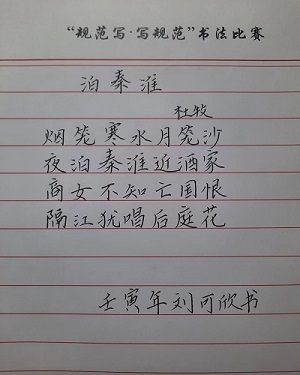 “规范写·写规范”书法比赛
泊秦淮
杜牧
烟笼寒水月笼沙
夜泊秦淮近酒家
商女不知亡国恨
隔江犹唱后庭花
壬寅年刘可欣书